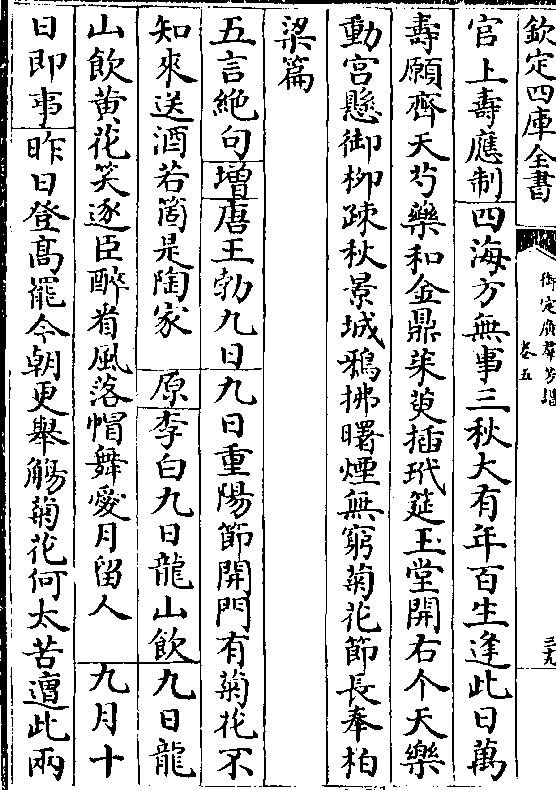 欽定四庫全書
御定廣羣芳譜
卷五
三十九
官上壽應制四海方無事三秋大有年百生逢此日萬
壽願齊天芍藥和金鼎茱萸插玳筵玉堂開右个天樂
動宮懸御柳疎秋景城鴉拂曙煙無窮菊花節長奉柏
梁篇
五言絶句增唐王勃九日九日重陽節開門有菊花不
知來送酒若箇是陶家原李白九日龍山飲九日龍
山飲黄花笑逐臣醉看風落帽舞愛月留人九月十
日即事昨日登高罷今朝更舉觴菊花何太苦遭此兩